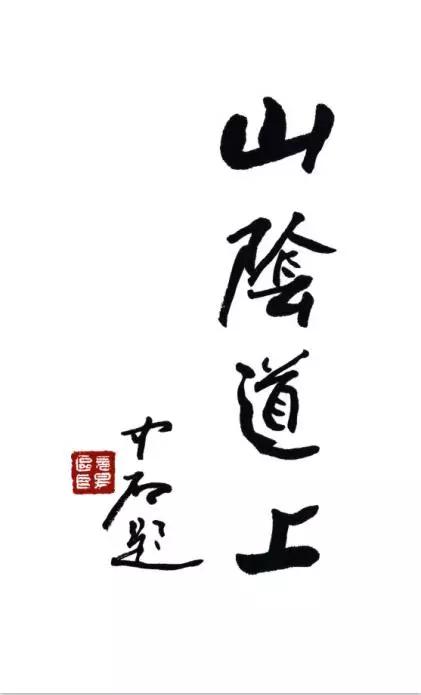 山陰道上
中石题